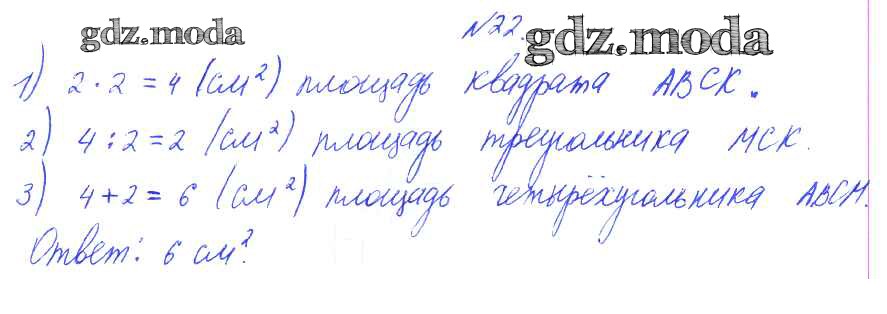 gdz.moda №22. gdz.moda
1) 2 · 2 = 4 (см²) площадь квадрата АВСК.
2) 4 : 2 = 2 (см²) площадь треугольника МСК.
3) 4 + 2 = 6 (см²) площадь четырёхугольника АВСМ.
Ответ: 6 см².